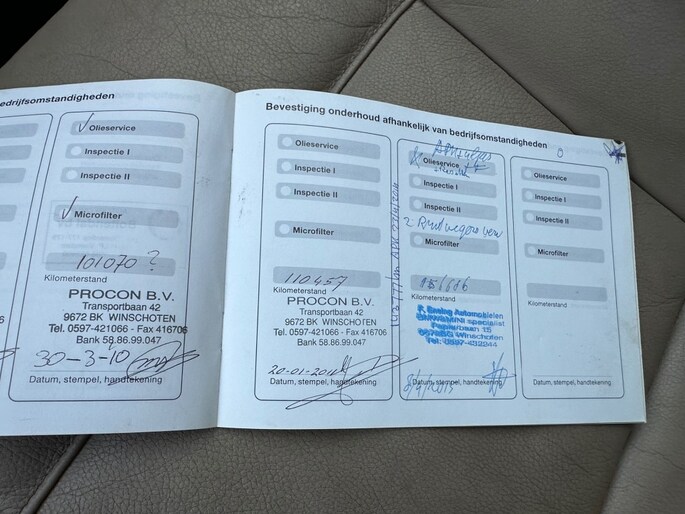 edrijfsomstandigheden
Olieservice
Inspectie I
Inspectie II
Microfilter
101070 ?
Kilometerstand
PROCON B.V.
Transportbaan 42
9672 BK WINSCHOTEN
Tel. 0597-421066 - Fax 416706
Bank 58.86.99.047
30-3-10
Datum, stempel, handtekening
Bevestiging onderhoud afhankelijk van bedrijfsomstandigheden
Olieservice
Inspectie I
Inspectie II
Microfilter
110457
Kilometerstand
PROCON B.V.
Transportbaan 42
9672 BK WINSCHOTEN
Tel. 0597-421066 - Fax 416706
Bank 58.86.99.047
Datum, stempel, handtekening
Olieservice
Inspectie I
Inspectie II
Microfilter
Kilometerstand
Winschoten
Datum, stempel, handtekening
Olieservice
Inspectie I
Inspectie II
Microfilter
Kilometerstand
Datum, stempel, handtekening